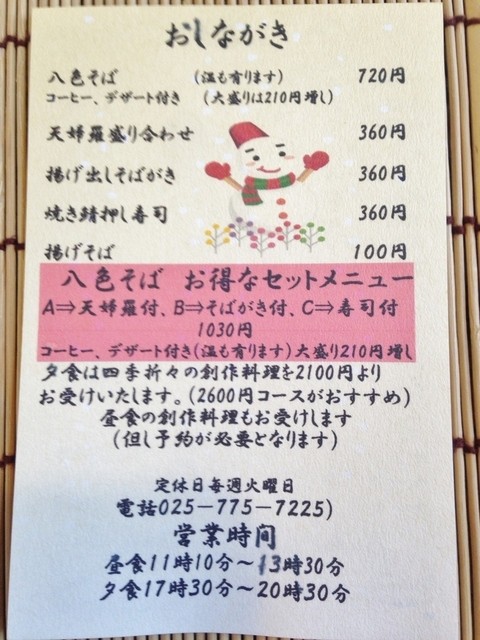 おしながき
八色そば (温も有ります) 720円
コーヒー、デザート付き (大盛りは210円増し)
天婦羅盛り合わせ 360円
揚げ出しそばがき 360円
焼き鯖押し寿司 360円
揚げそば 100円
八色そば お得なセットメニュー
A⇒天婦羅付、B⇒そばがき付、C⇒寿司付
1030円
コーヒー、デザート付き(温も有ります)大盛り210円増し
夕食は四季折々の創作料理を2100円より
お受けいたします。(2600円コースがおすすめ)
昼食の創作料理もお受けします
(但し予約が必要となります)
定休日毎週火曜日
電話025-775-7225)
営業時間
昼食11時10分～13時30分
夕食17時30分～20時30分